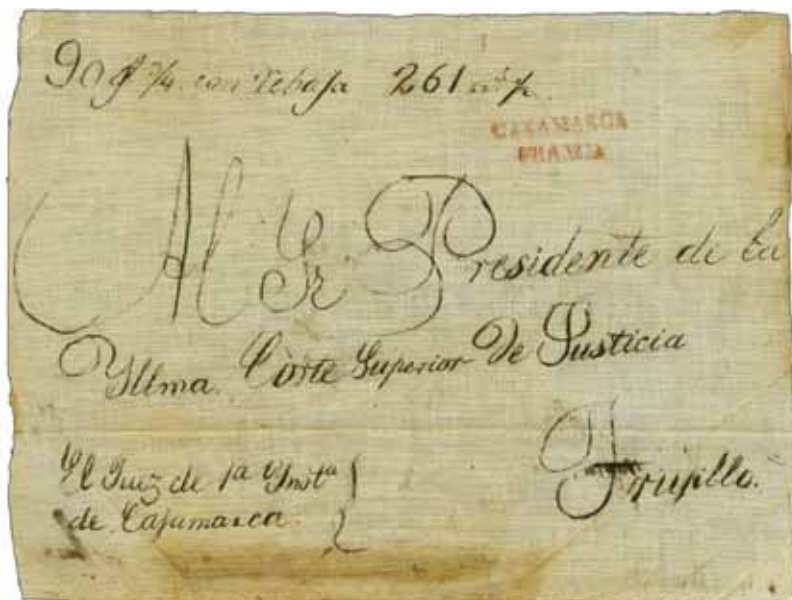 con rebaja 261
CAXAMARCA
FRANCA
Al Sr Presidente de la
Yllma. Corte Superior de Justicia
Trujillo.
El Juez de 1a Ynsta
de Cajamarca